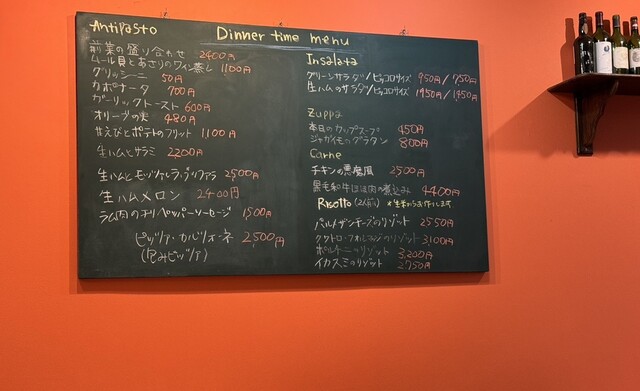 Dinner time menu
Antipasto
前菜の盛り合わせ 2400円
ムール貝とあさりのワイン蒸し 1100円
グリッシーニ 50円
カポナータ 700円
ガーリックトースト 600円
オリーブの実 480円
甘えびとポテトのフリット 1100円
生ハムとサラミ 2200円
生ハムとモッツァレラ・ブッファラ 2500円
生ハムメロン 2400円
ラム肉のチリペッパーソーセージ 1500円
ピッツァ・カルツォーネ 2,500円
(包みピッツァ)
Insalata
グリーンサラダ/ピッコロサイズ 950円/750円
生ハムのサラダ/ピッコロサイズ 1950円/1450円
Zuppa
本日のカップスープ 450円
ジャガイモのグラタン 800円
Carne
チキンの悪魔風 2500円
黒毛和牛ほほ肉の煮込み 4400円
Risotto (2人前) *生米からお作りします
パルメザンチーズのリゾット 2550円
クワトロ・フォルマッジのリゾット 3,100円
ポルチーニのリゾット 3,200円
イカスミのリゾット 2750円